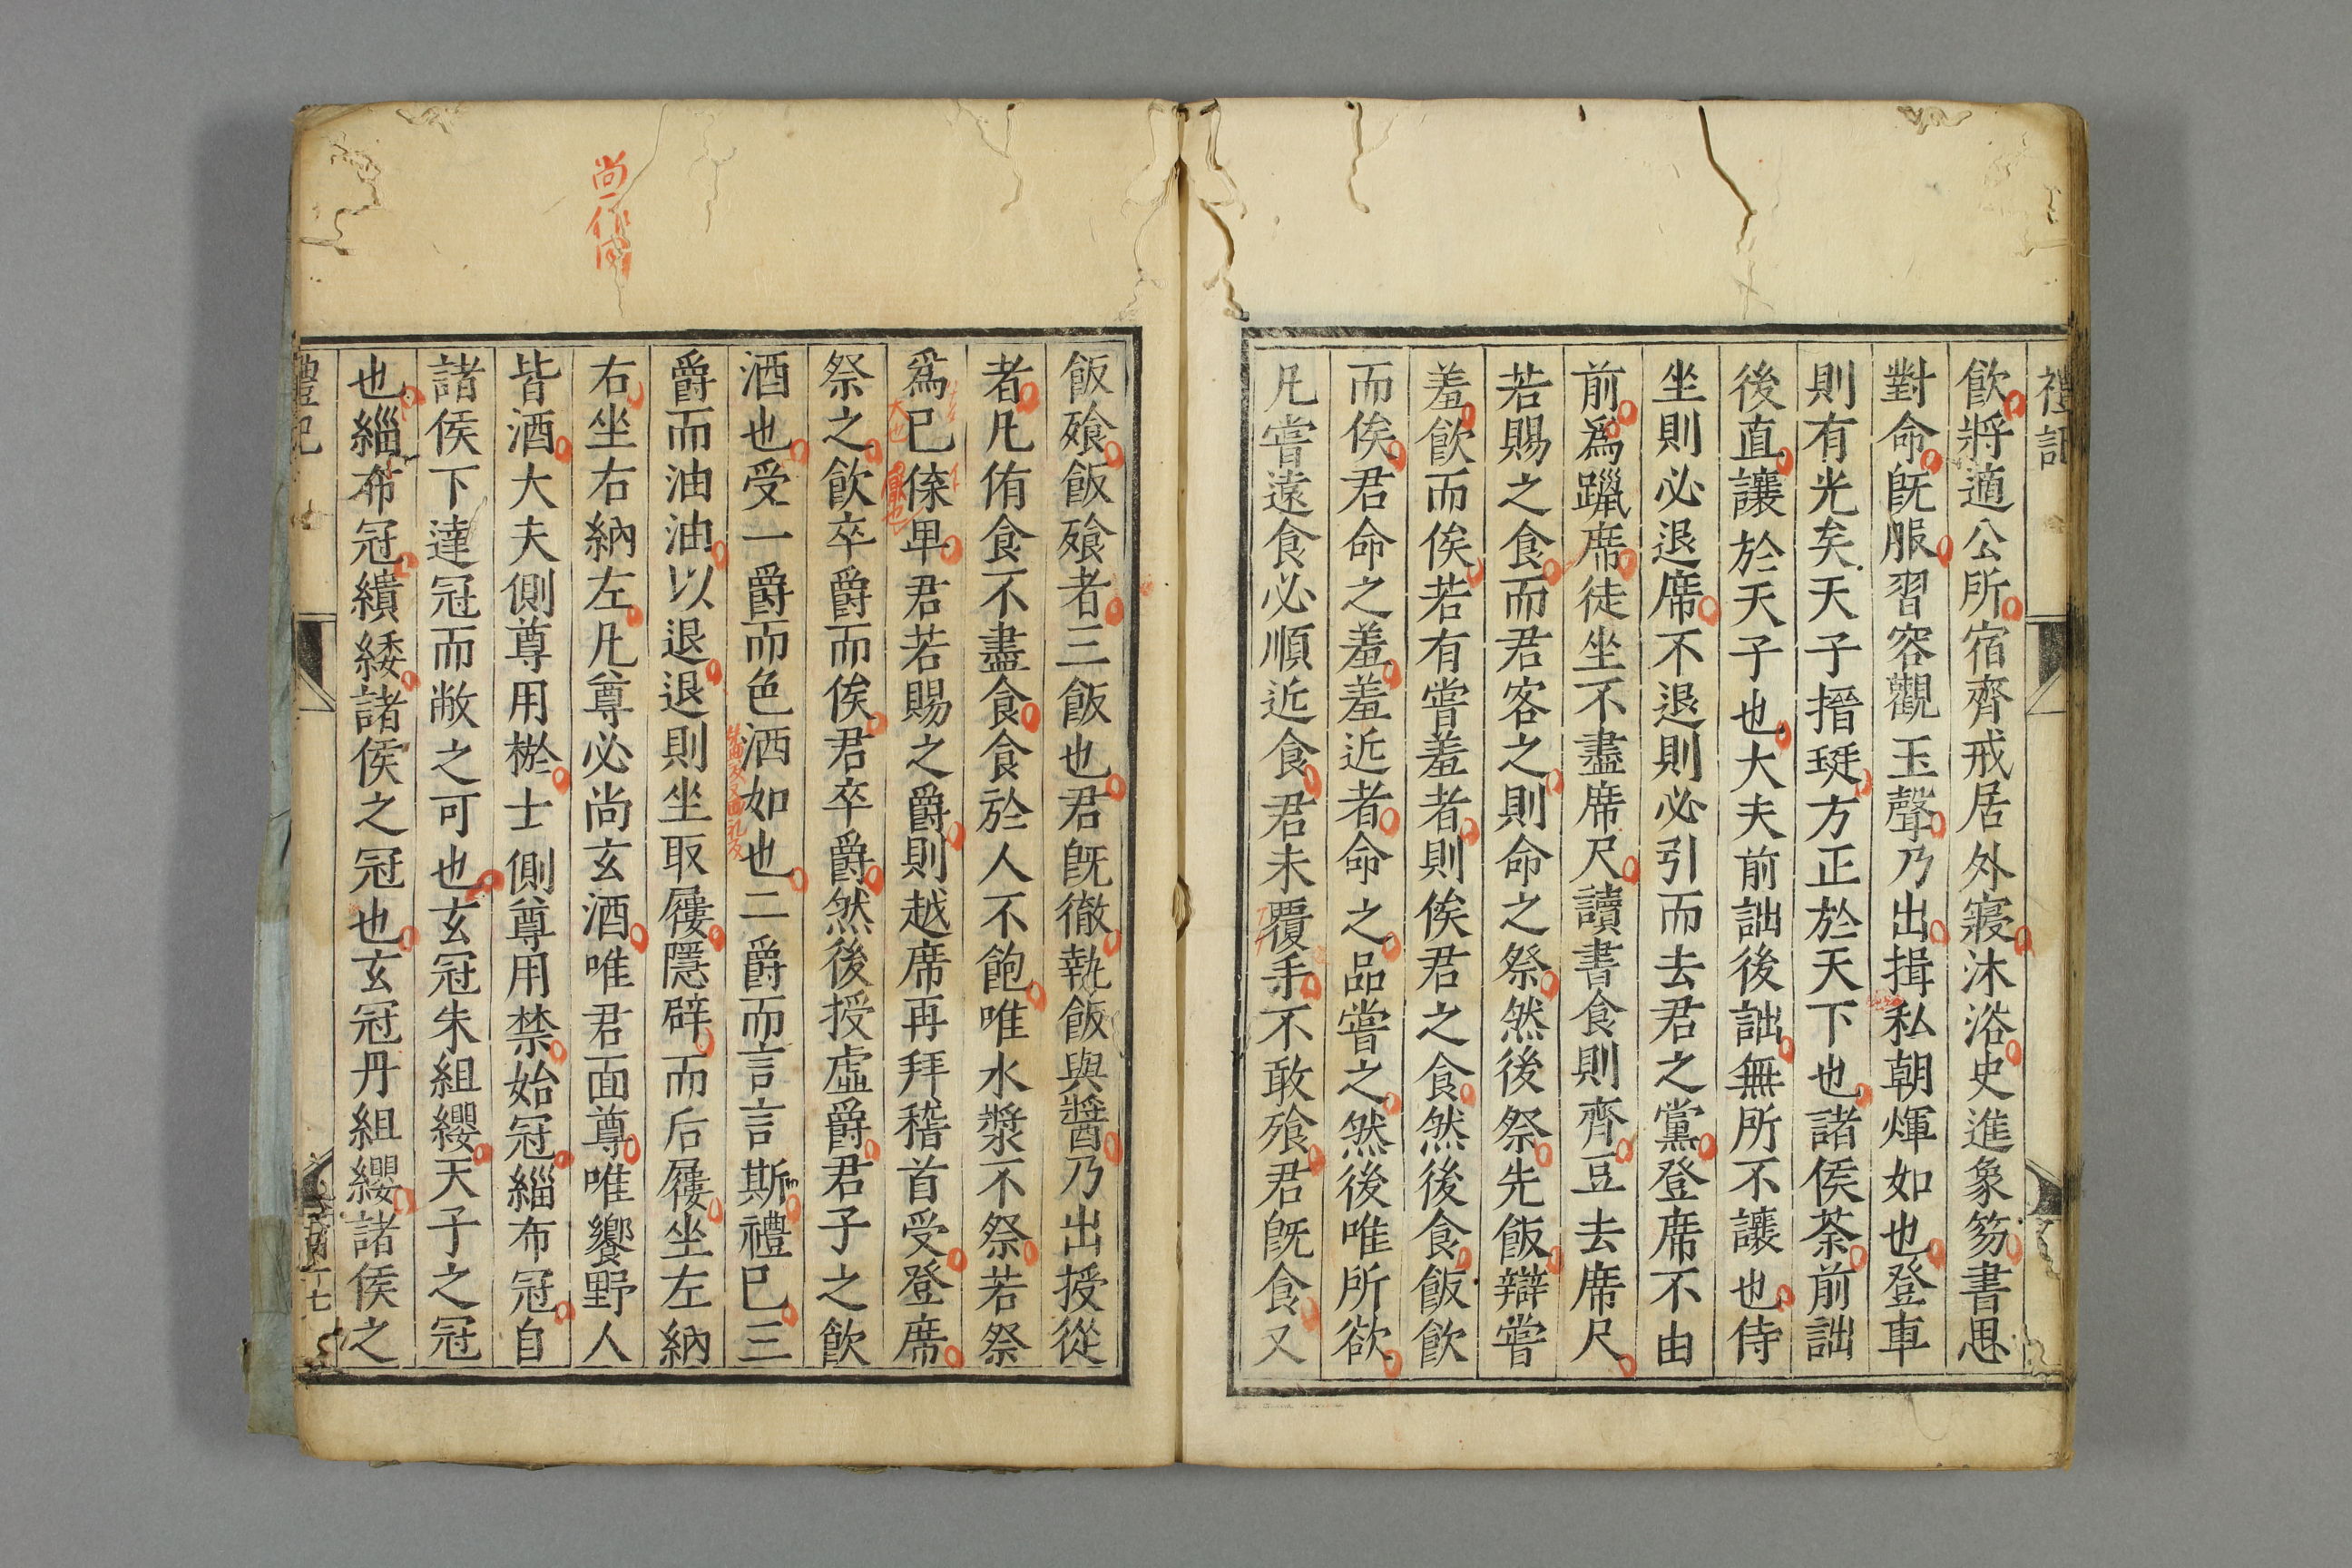 禮記
飮將適公所宿齊戒居外寢沐浴史進象笏書思
對命旣服習容觀玉聲乃出揖私朝煇如也登車
則有光矣天子搢珽方正於天下也諸侯荼前詘
後直讓於天子也大夫前詘後詘無所不讓也侍
坐則必退席不退則必引而去君之黨登席不由
前爲躐席徒坐不盡席尺讀書食則齊豆去席尺
若賜之食而君客之則命之祭然後祭先飯辯嘗
羞飮而俟若有嘗羞者則俟君之食然後食飯飮
而俟君命之羞羞近者命之品嘗之然後唯所欲
凡嘗遠食必順近食君未覆手不敢飱君旣食又
飯飱飯飱者三飯也君旣徹執飯與醬乃出授從
者凡侑食不盡食食於人不飽唯水漿不祭若祭
爲已偞卑君若賜之爵則越席再拜稽首受登席
祭之飮卒爵而俟君卒爵然後授虛爵君子之飮
酒也受一爵而色洒如也二爵而言言斯禮已三
爵而油油以退退則坐取屨隱辟而后屨坐左納
右坐右納左凡尊必尚玄酒唯君面尊唯饗野人
皆酒大夫側尊用棜士側尊用禁始冠緇布冠自
諸侯下達冠而敝之可也玄冠朱組纓天子之冠
也緇布冠繢緌諸侯之冠也玄冠丹組纓諸侯之
禮記
尚一作